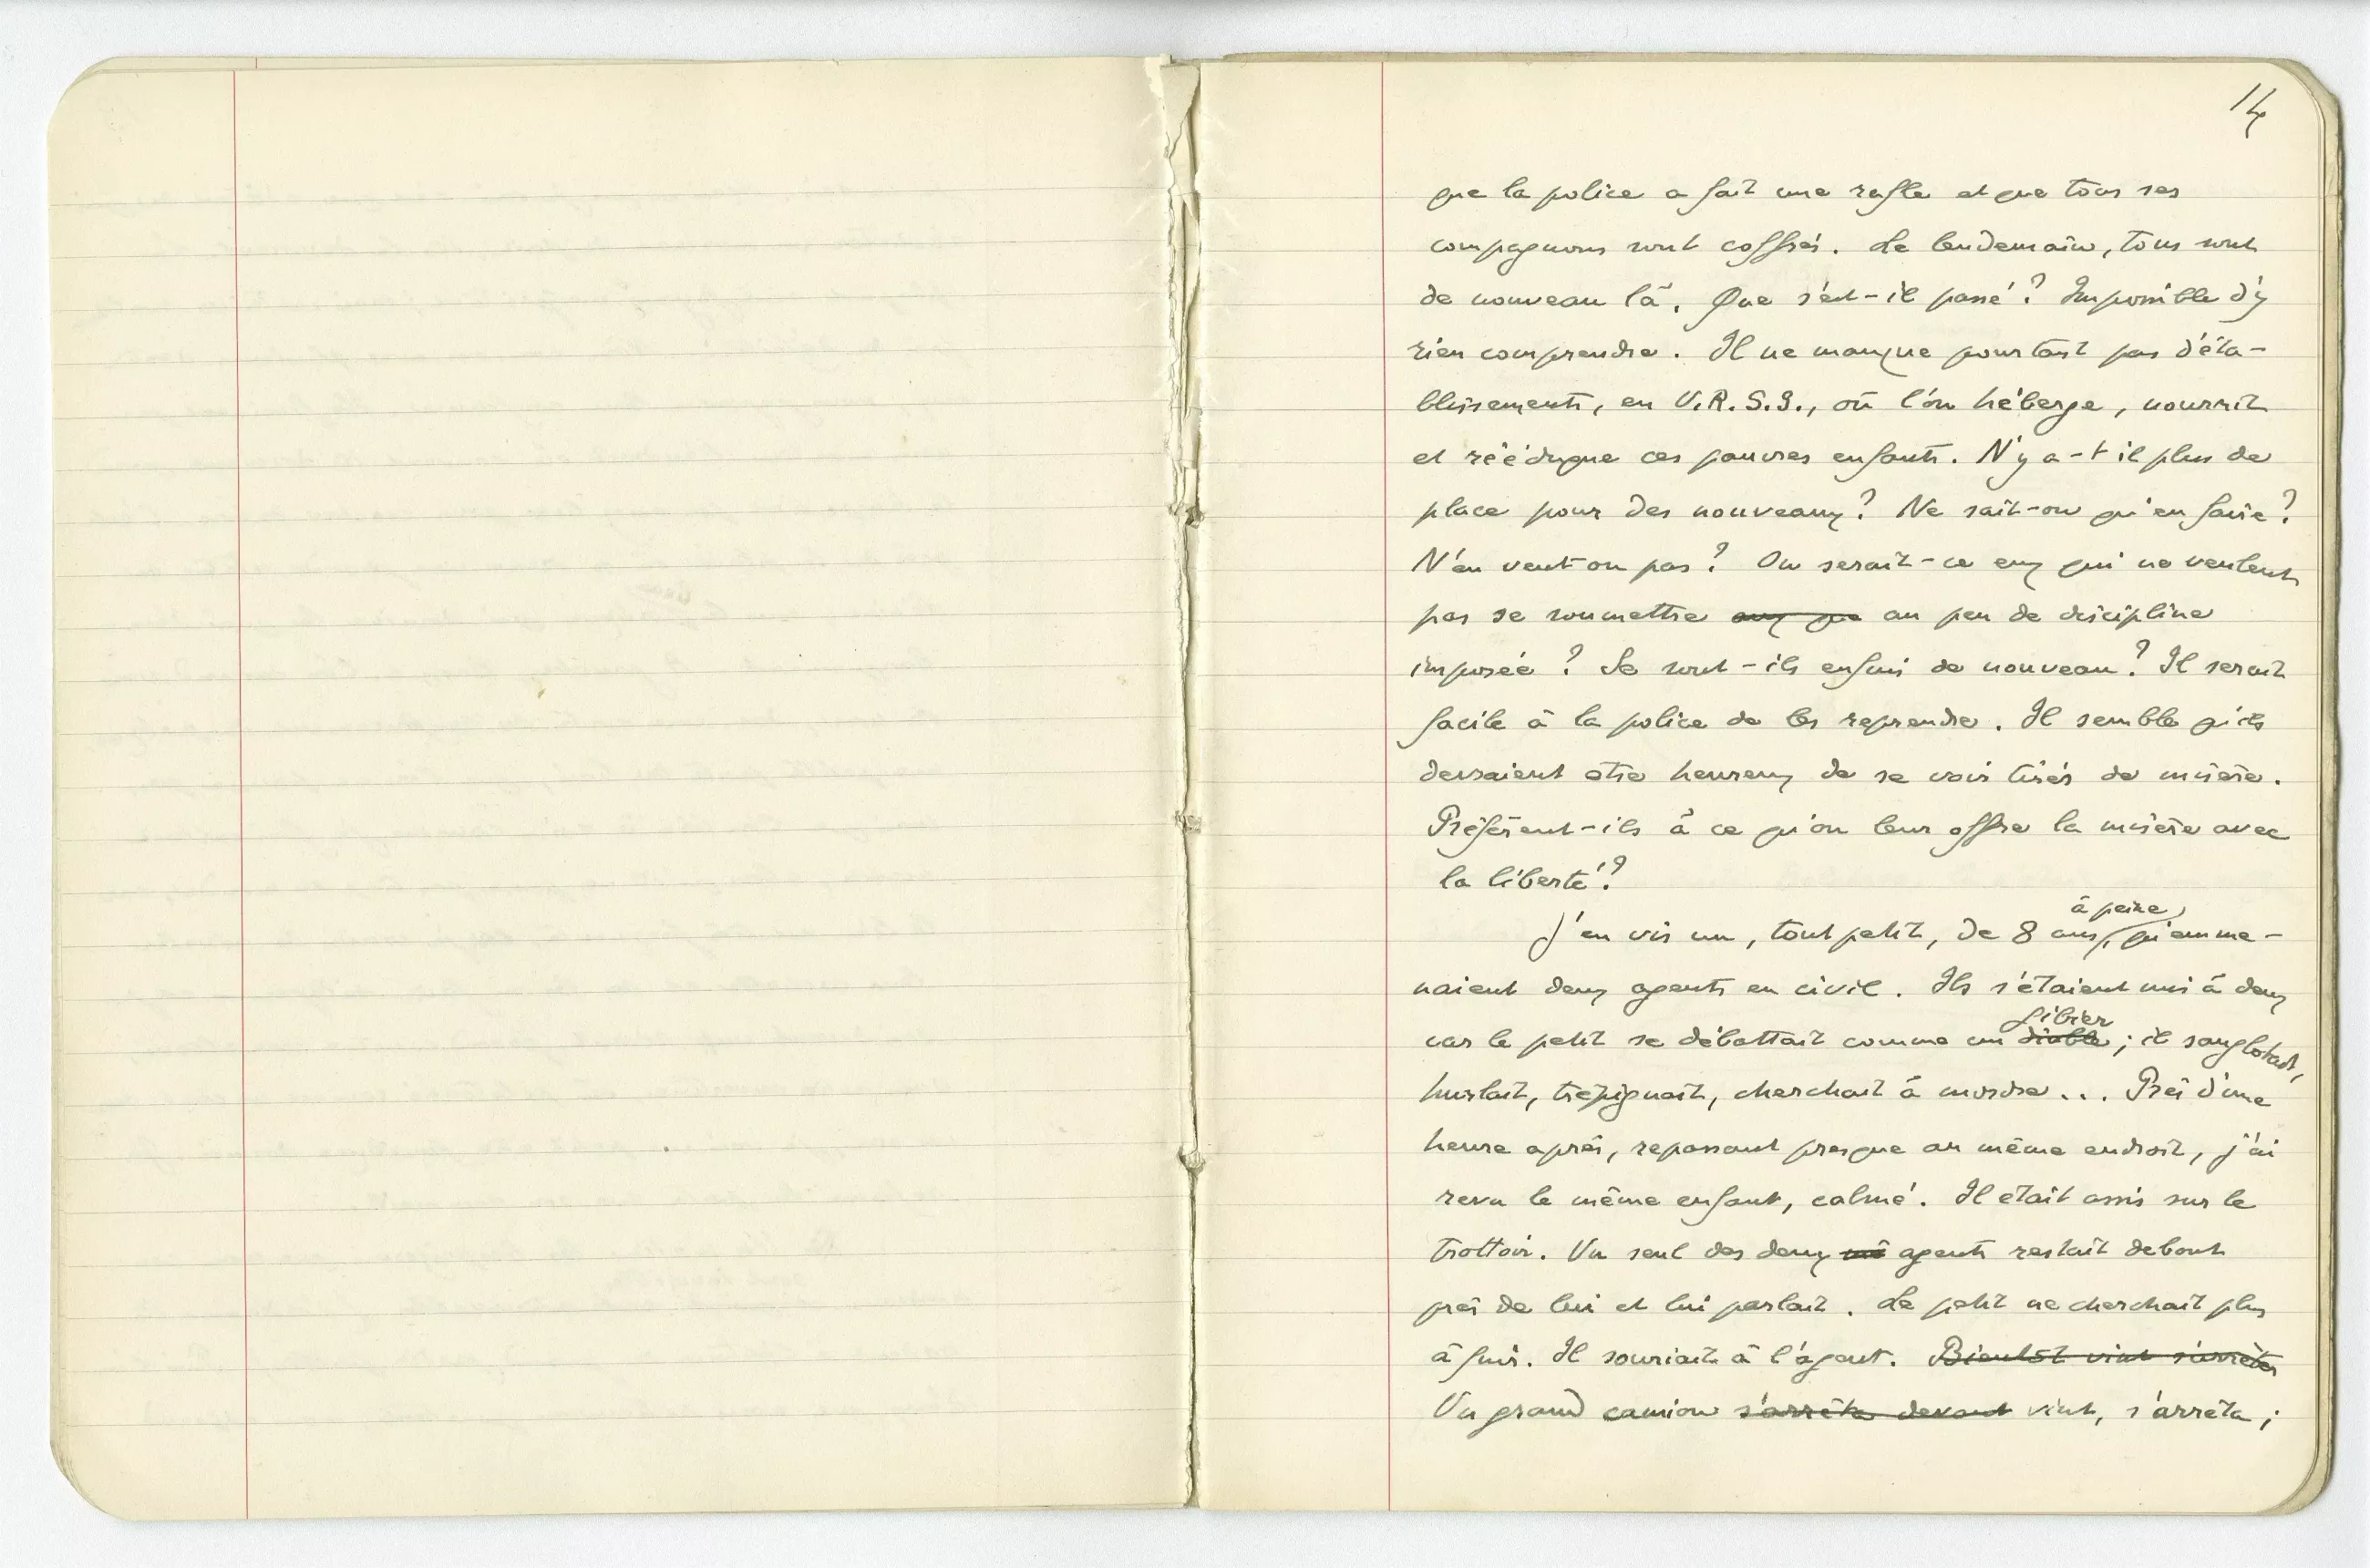 14
que la police a fait une rafle et que tous ses
compagnons sont coffrés. Le lendemain, tous sont
de nouveau là. Que s'est-il passé ? Impossible d'y
rien comprendre. Il ne manque pourtant pas d'éta-
blissements, en U.R.S.S., où l'on héberge, nourrit
et rééduque ces pauvres enfants. N'y a-t il plus de
place pour des nouveaux ? Ne sait-on qu'en faire ?
N'en veut-on pas ? Ou serait-ce eux qui ne veulent
pas se soumettre aux que au peu de discipline
imposée ? Se sont-ils enfuis de nouveau ? Il serait
facile à la police de les reprendre. Il semble qu'ils
devraient être heureux de se voir tirés de misère.
Préfèrent-ils à ce qu'on leur offre la misère avec
la liberté ?
à peine,
J'en vis un, tout petit, de 8 ans, qu'emme-
naient deux agents en civil. Ils s'étaient mis à deux
gibier
car le petit se débattait comme un diable ; il sanglotait,
hurlait, trépignait, cherchait à mordre... Près d'une
heure après, repassant presque au même endroit, j'ai
revu le même enfant, calmé. Il était assis sur le
trottoir. Un seul des deux agents restait debout
près de lui et lui parlait. Le petit ne cherchait plus
à fuir. Il souriait à l'agent. Bientôt vint s'arrêter
Un grand camion s'arrêta devant vint, s'arrêta ;